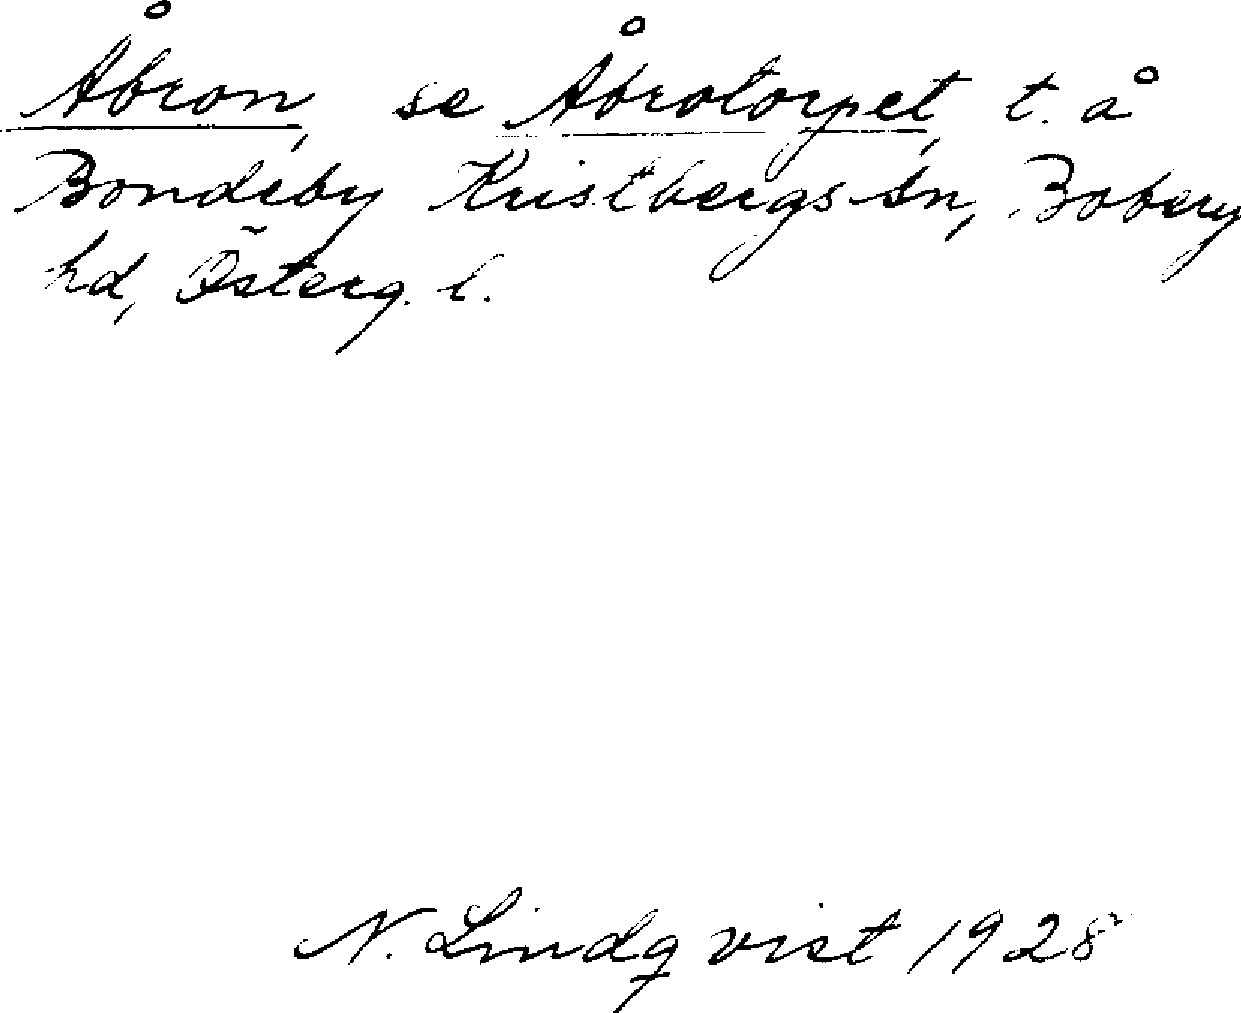 Åbron, se Åbrotorpet, t. å
Bondeby Kristbergs sn, Boberg
hd, Österg. l.
N. Lindqvist 1928